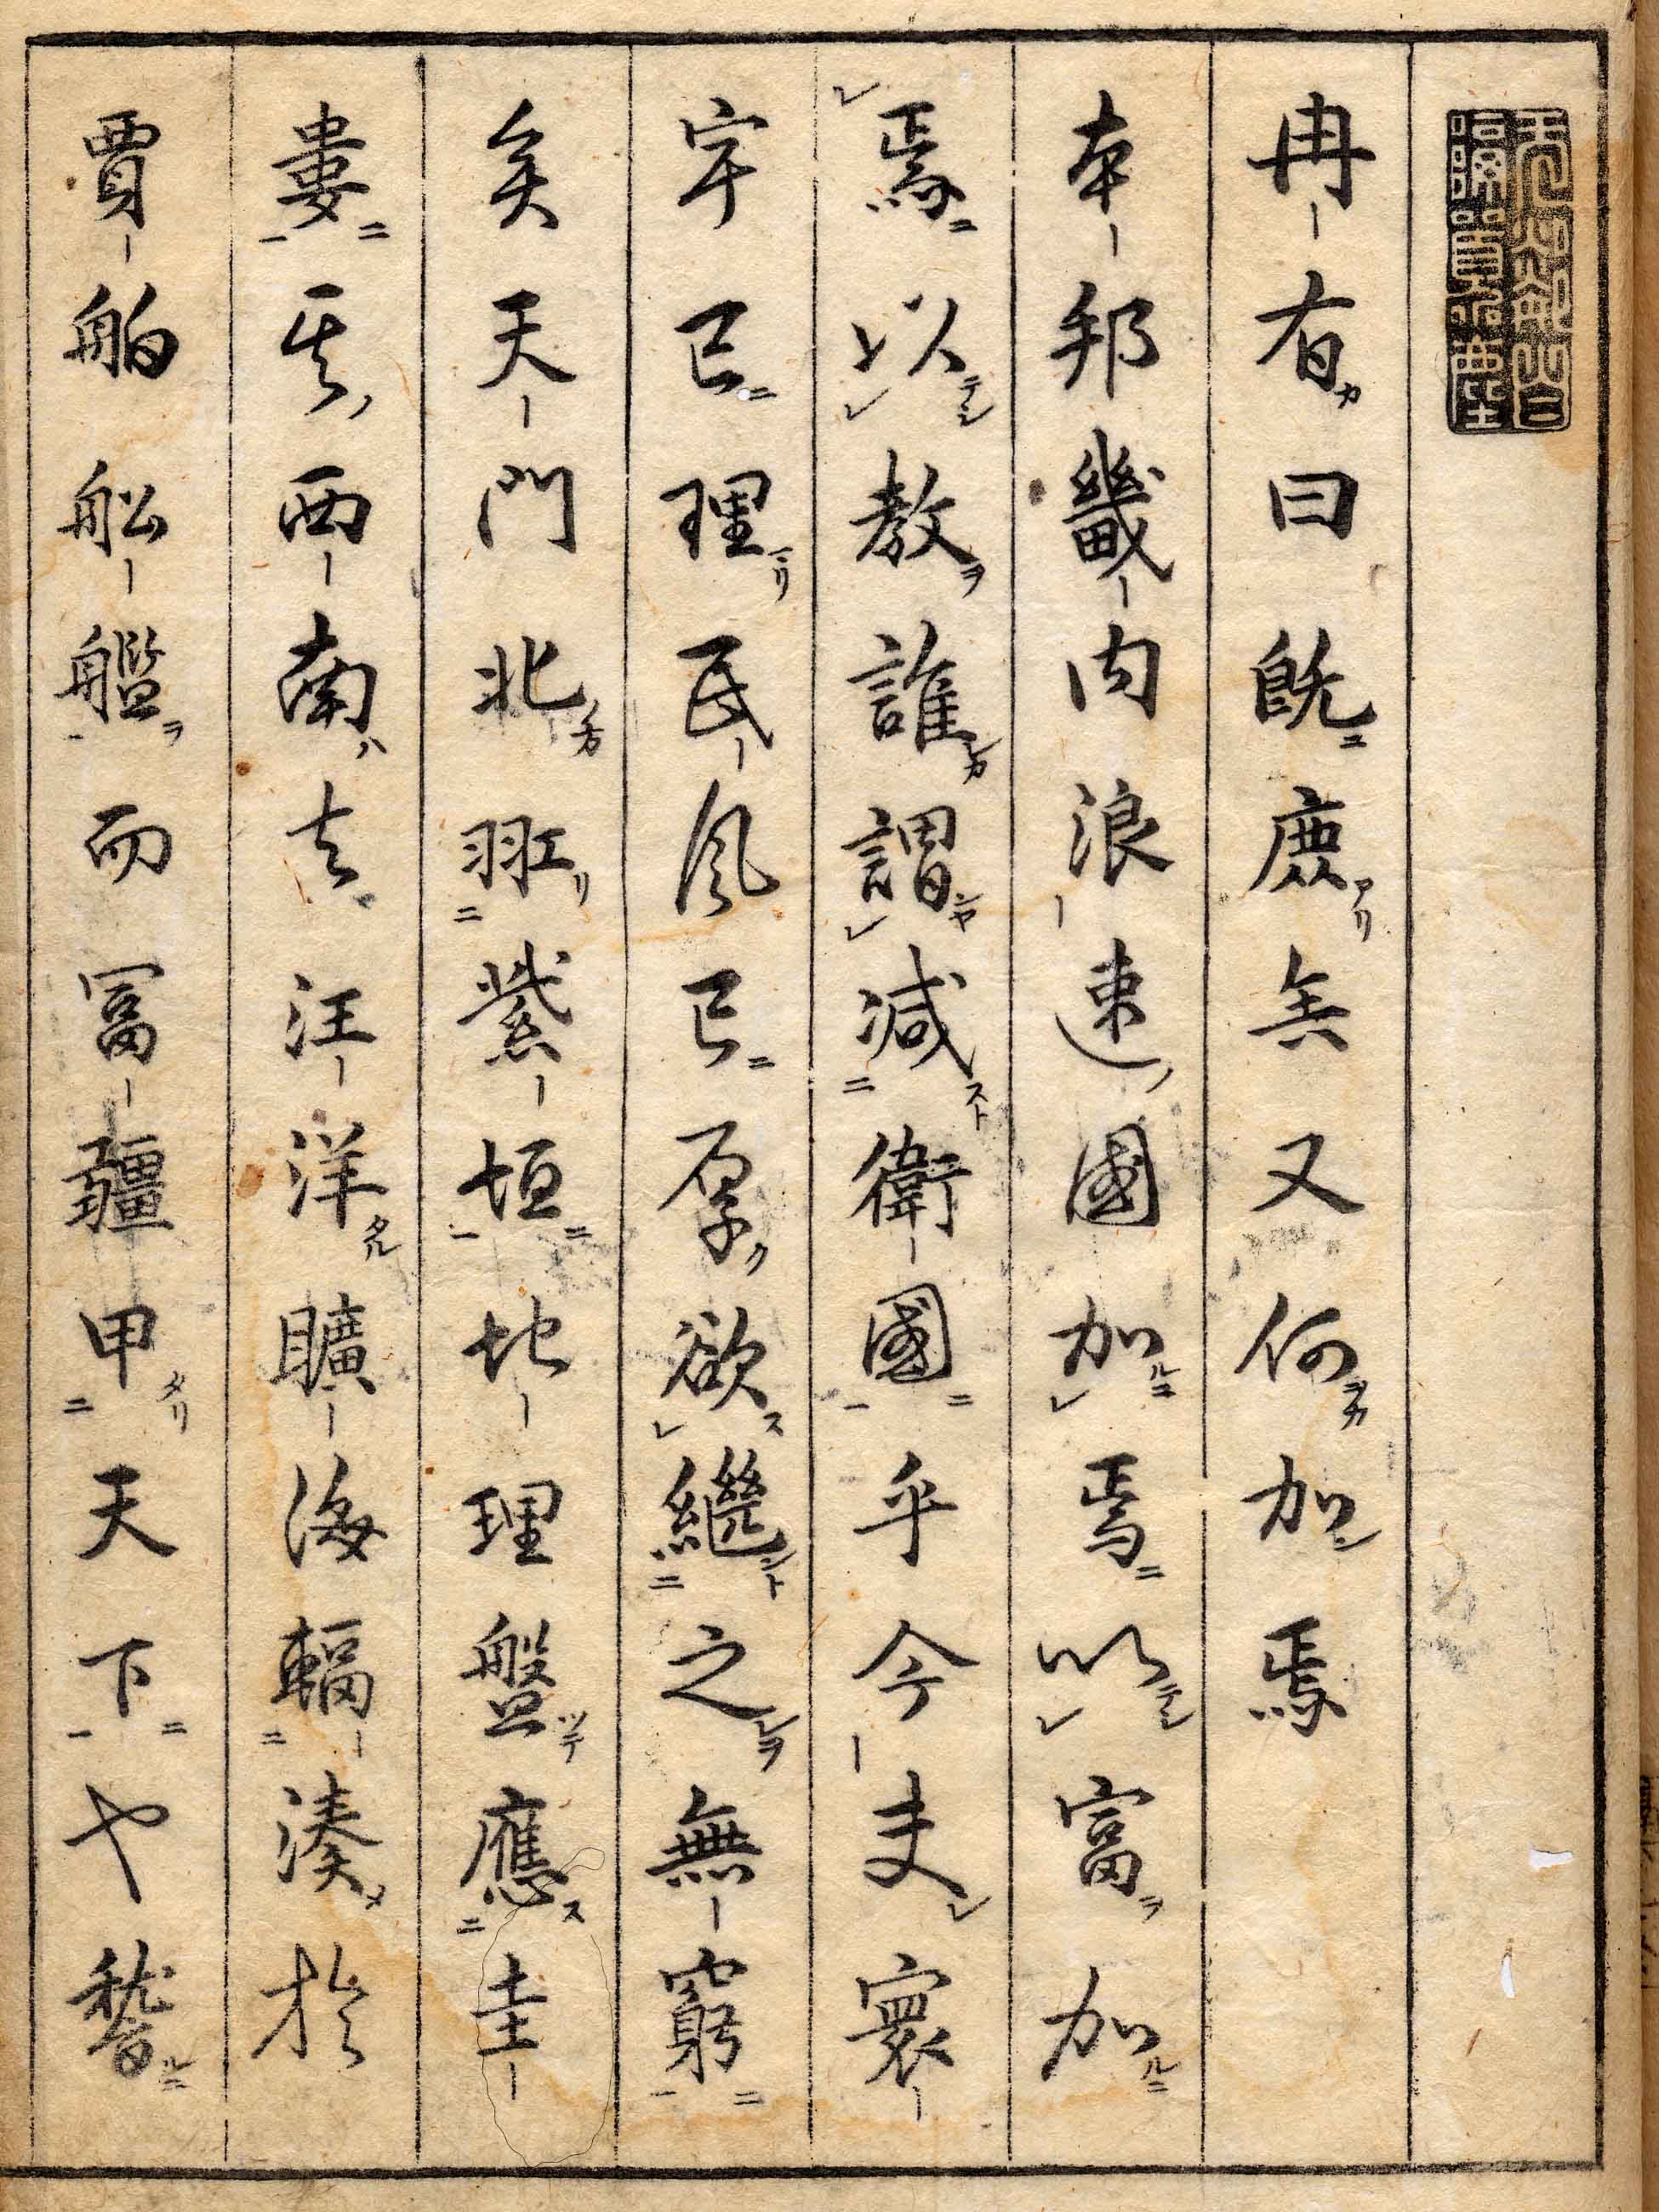 冉有曰既庶矣又何加焉
本邦畿内浪速國加焉以富加
焉以教誰謂減衛國乎今夫寰
宇已理民風已厚欲繼之無窮
矣天門北羾紫垣地理盤應圭
婁其西南去汪洋曠海輻湊於
賈舶舩艦而冨疆甲天下也嵆